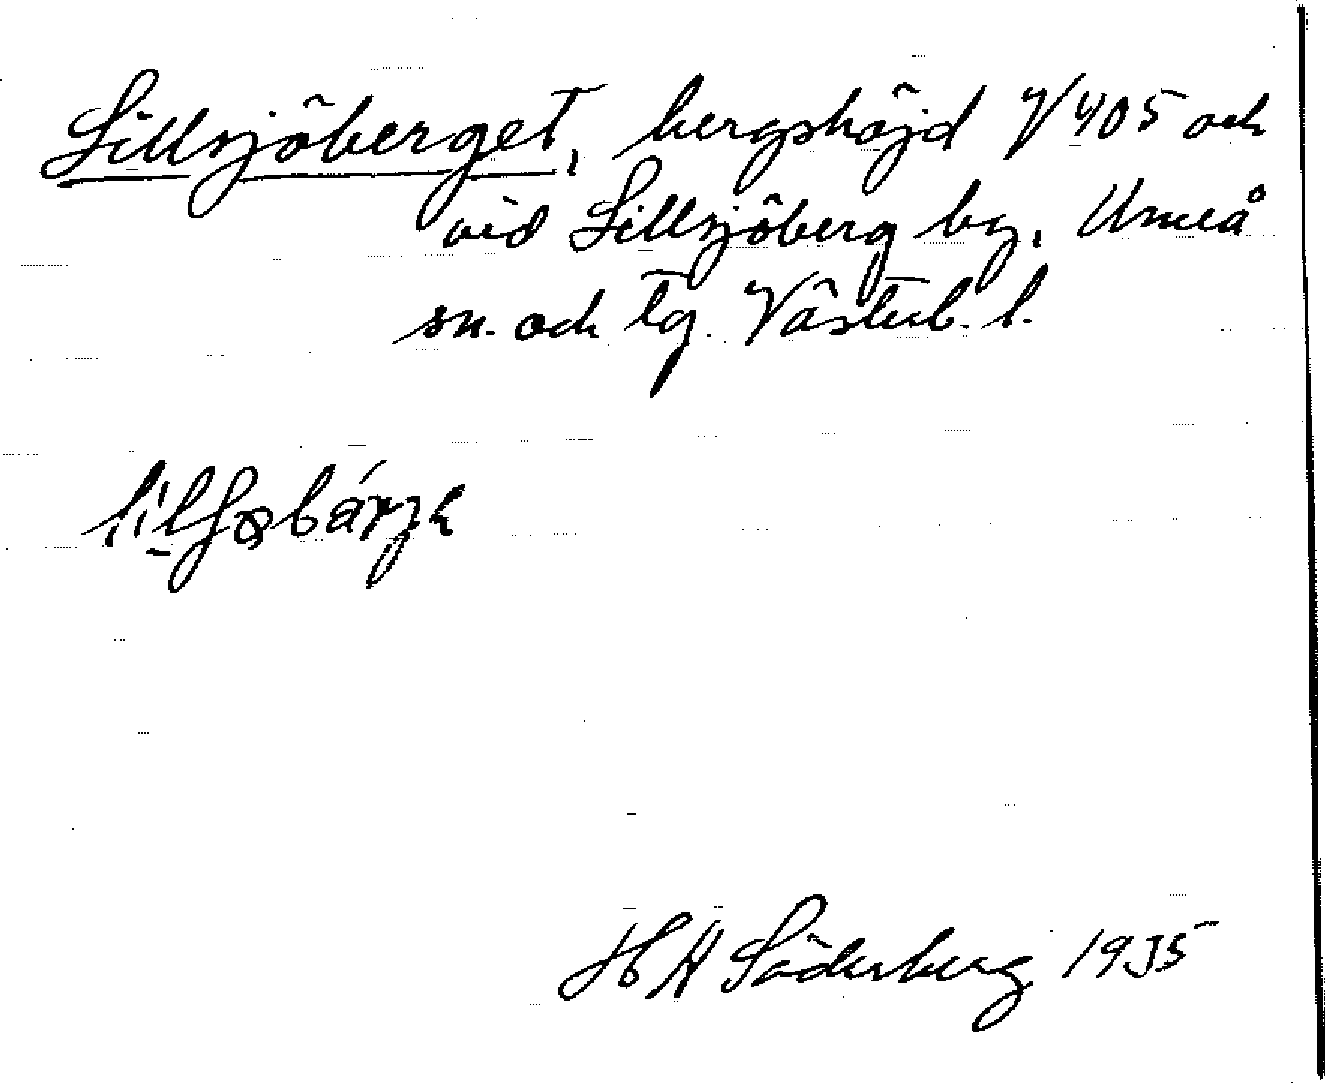 Lillsjöberget, bergshöjd V 405 och
vid Lillsjöberg by, Umeå
sn. och tg. Västerb. l.
H A Söderberg 1935